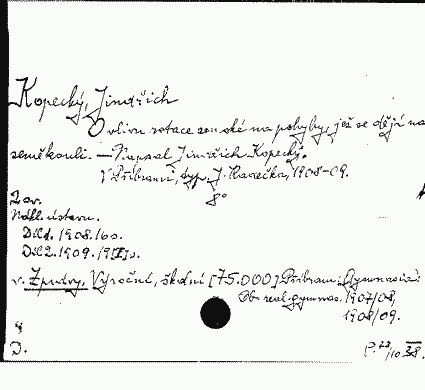 Kopecký, Jindřich
O vlivu rotace zemské na pohyby, jež se dějí na
zeměkouli. — Napsal Jindřich Kopecký.
V Příbrami, typ. J. Karečka, 1908-09.
8°
2 sv.
Nákl. ústavu.
Díl 1. 1908. 16 s.
Díl 2. 1909. 19 s.
v. Zprávy. Výroční, školní [75.000] Příbram: Gymnasia:
Ob. real. gymnas. 1907/08,
1908/09.
8
D.
P. 28/10 38.